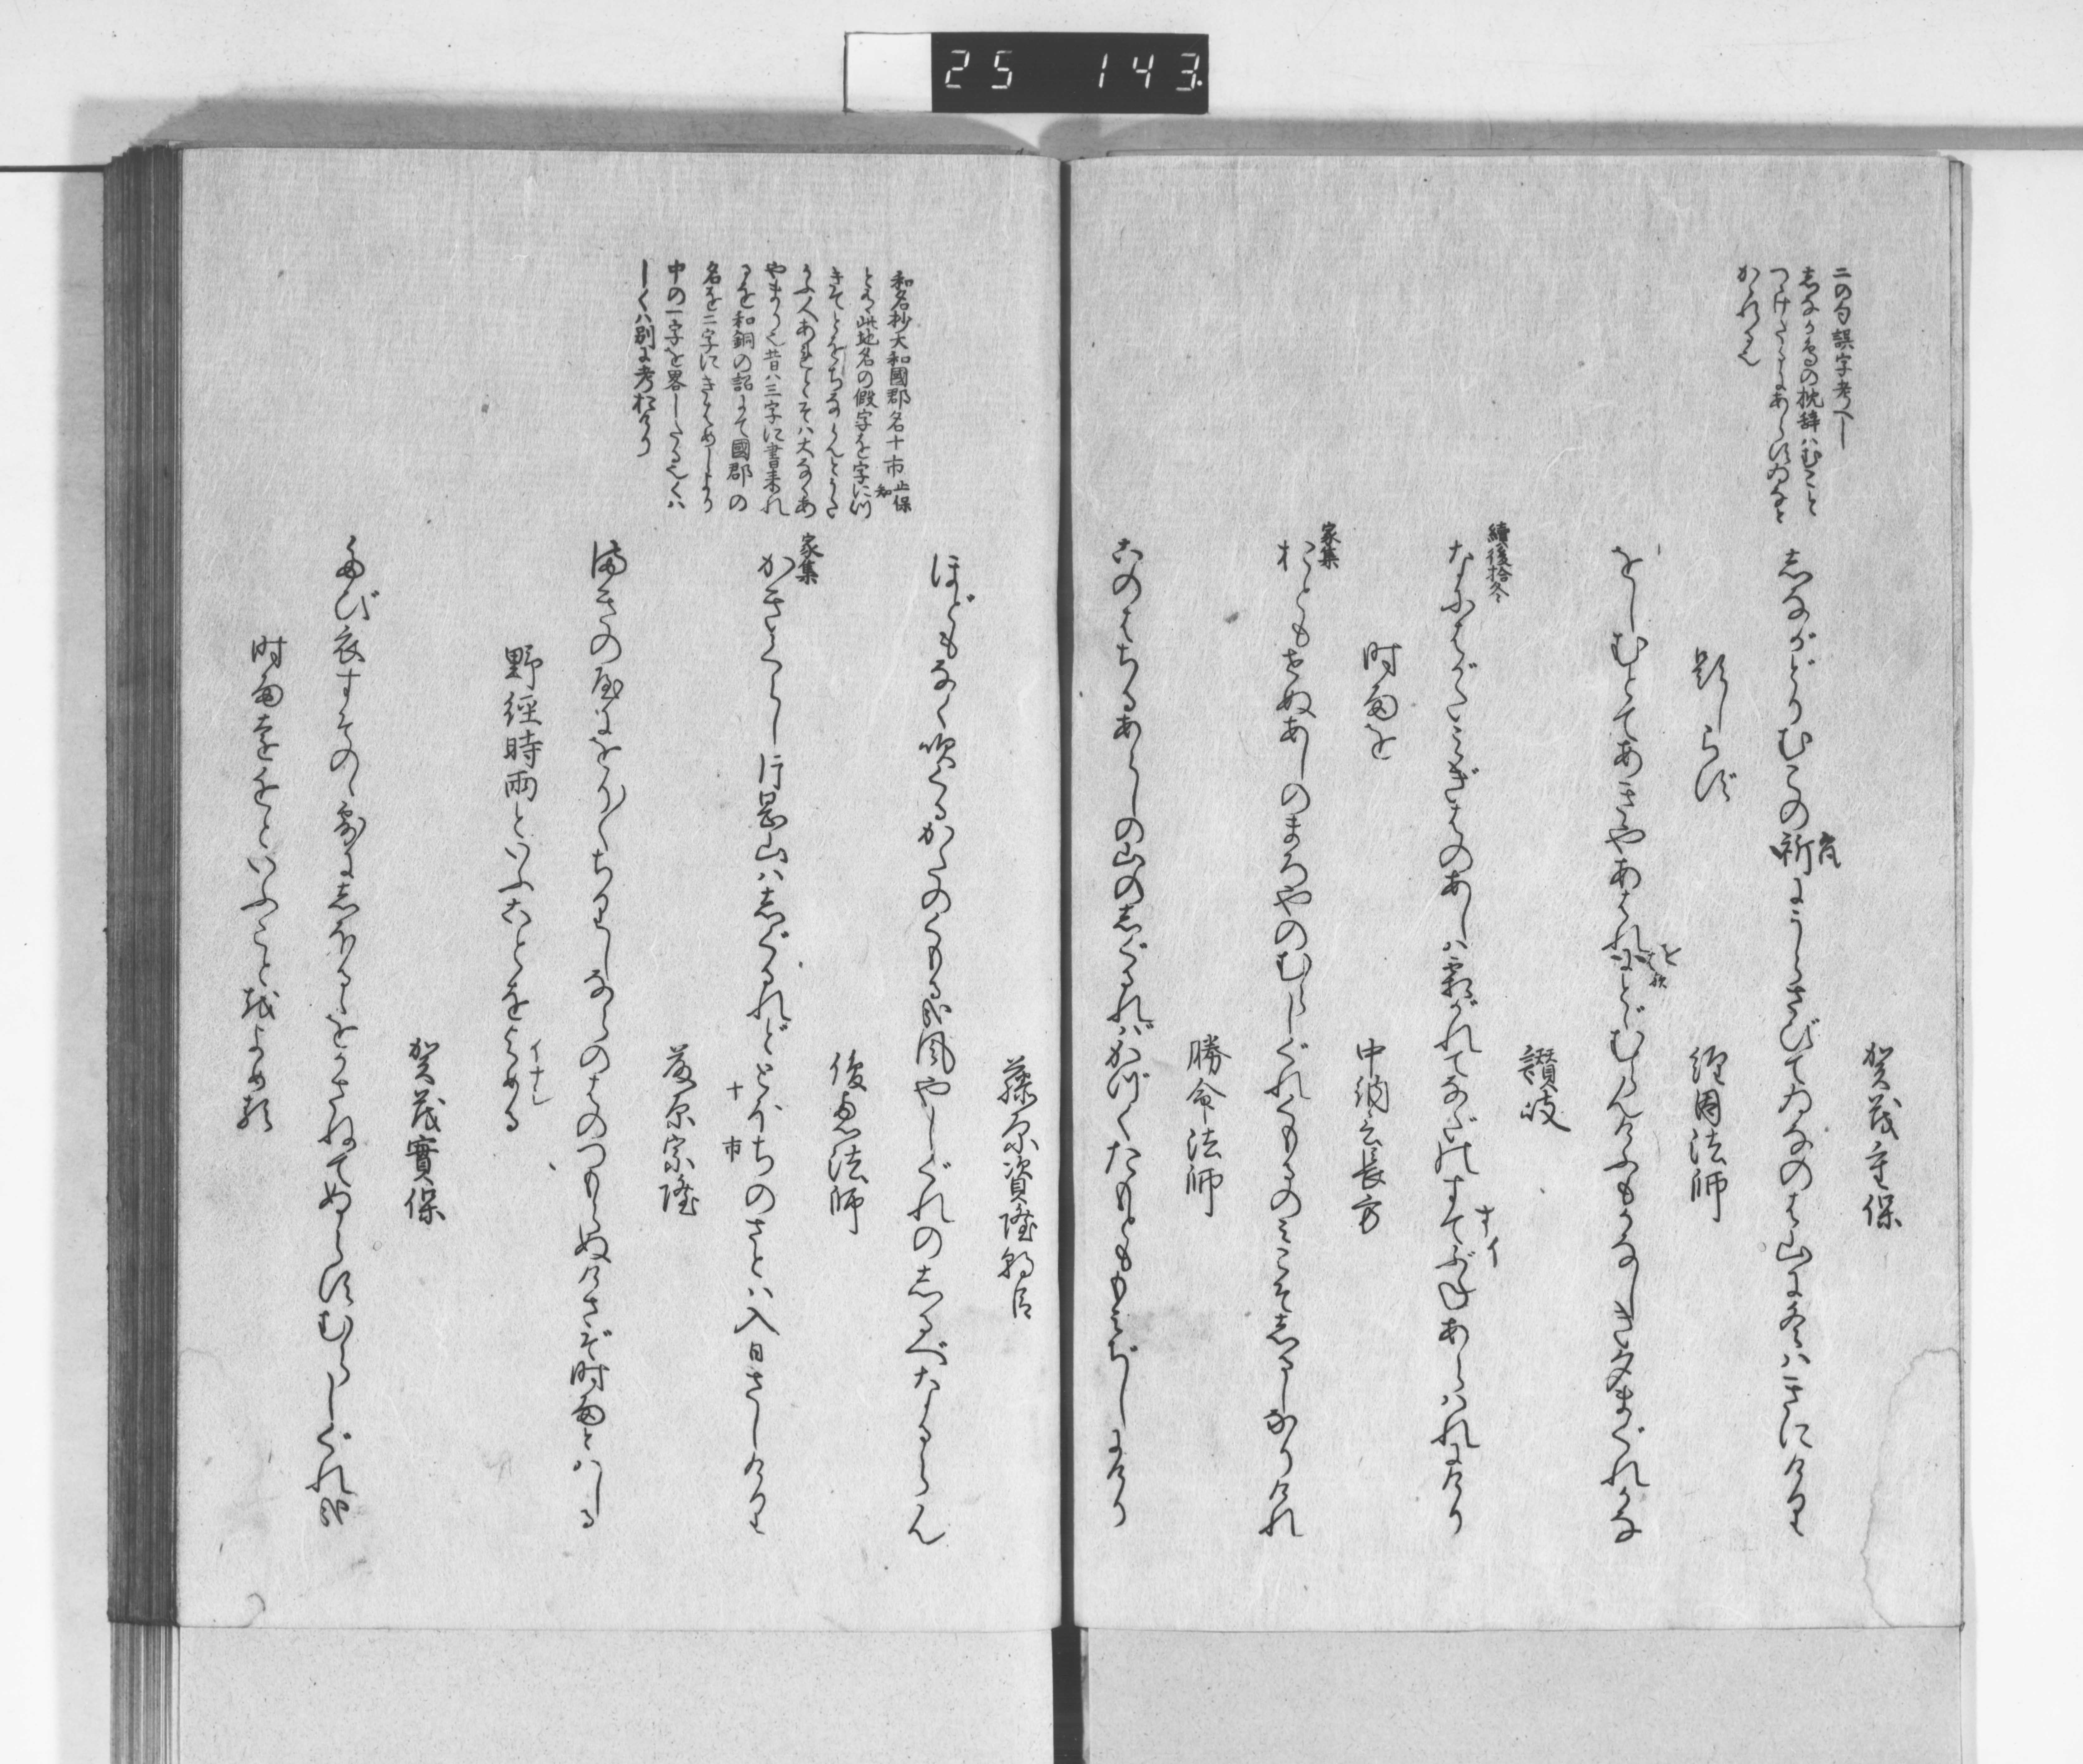 25 143
二の句誤字考へし
しなか鳥の枕辞ハむこと
つけたるにあらすゐなと
かゝれる也
賀茂重保
しながどりむこの祈にうらさびてゐなのは山に冬ハきにけり
題しらず
経因法師
をしむとてあきやあはれにとゞむらんけふもかなしき夕まぐれかな
讃岐
續後拾冬
なにはがたみぎはのあしハ霜がれてなだのすてぶねあらハれにけり
時雨を
中納言長方
家集
おともせぬあしのまろやのむらしぐれくもるのみこそしるしなりけれ
勝命法師
このはちるあらしの山のしぐるればかづくたもとももみぢしにけり
藤原資隆朝臣
ほどもなく吹くるかたのくもる哉風やしぐれのしるべなるらん
和名抄大和國郡名十市止保知
とある此地名の假字を字につ
きてとをちならんとうた
かふ人あれとそハ大なるあ
やまり也昔ハ三字に書来れ
るを和銅の詔にて國郡の
名を二字にきはめしより
中の一字を畧したる也くハ
しくハ別に考おけり
俊恵法師
家集
かきくらし片岡山ハしぐるれどとほちのさとハ入日さしけり
十市
藤原宗隆
まきの屋にをりをりちりしならのはのつもらぬけさぞ時雨とハしる
野径時雨といふことをよめる
イナシ
賀茂實保
たび衣すそのゝ露にしをるゝをかさねてぬらすむらしぐれ哉
時雨をきくといふこと越よめる